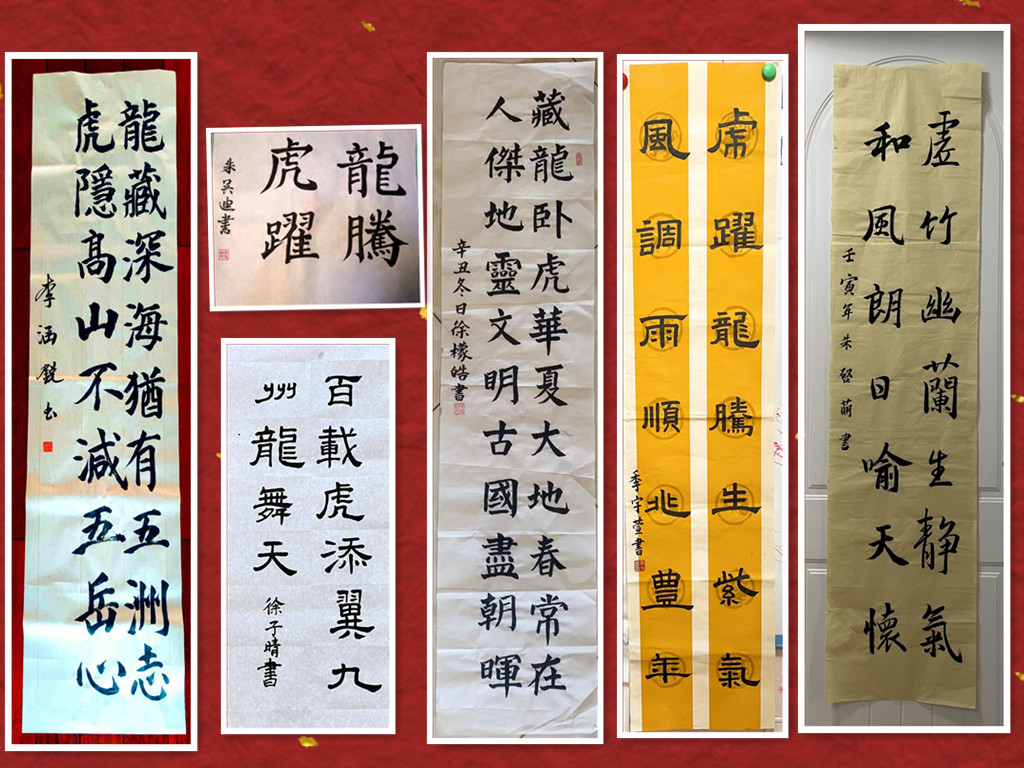 龍藏深海猶有五洲志
虎隱髙山不減五岳心
李涵鋭书
龍騰
虎躍
朱吳迪書
百載虎添翼九
州龍舞天
徐子晴書
藏龍卧虎華夏大地春常在
人傑地靈文明古國盡朝暉
辛丑冬日徐檬皓書
虎躍龍騰生紫氣
風調雨順兆豊年
季宇萱書
虛竹幽蘭生静氣
和風朗日喻天懷
壬寅年朱啓萌書